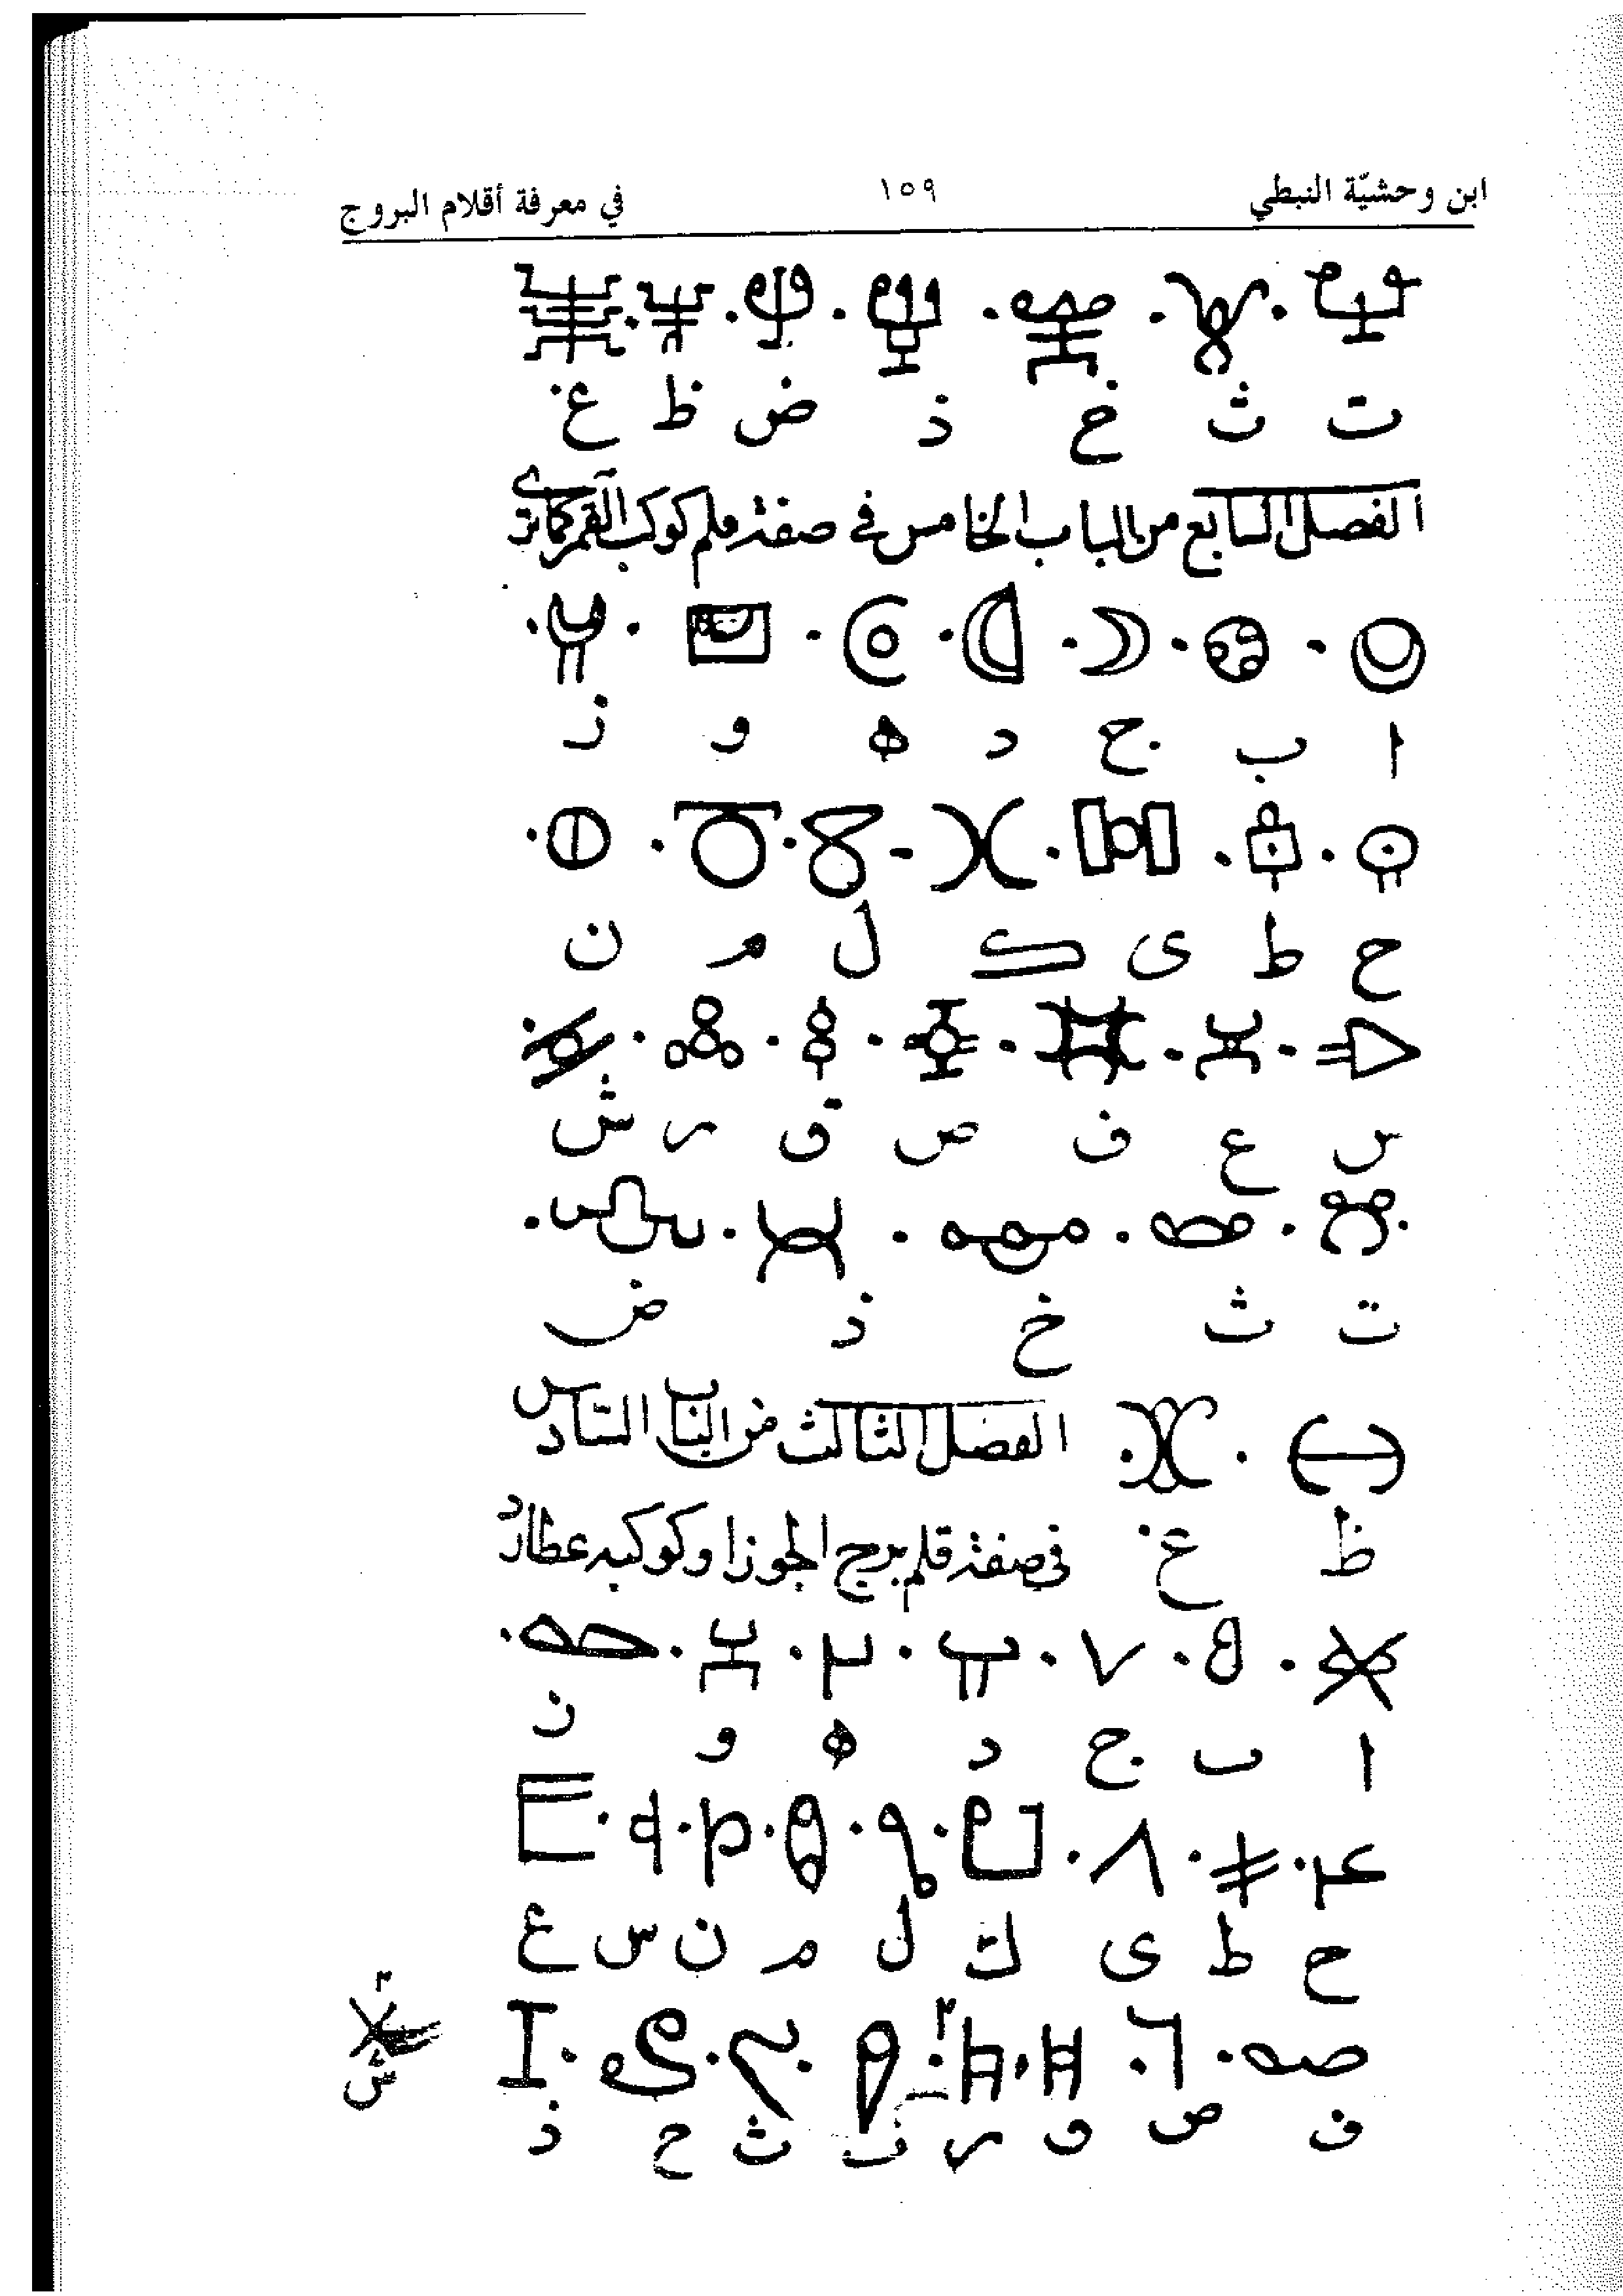 ابن وحشيّة النبطي ١٥٩ في معرفة أقلام البروج
ت ث خ ذ ض ظ غ
الفصل السابع من الباب الخامس في صفة قلم كوكب القمر كما ترى
ا ب ج د ه و ز
ح ط ى ك ل م ن
س ع ف ص ق ر ش
ت ث خ ذ ض
الفصل الثالث من الباب السادس
ظ غ في صفة قلم برج الجوزا وكوكبه عطارد
ا ب ج د ه و ز
ح ط ى ك ل م ن س ع
ف ص ق ر ت ث خ ذ
ش